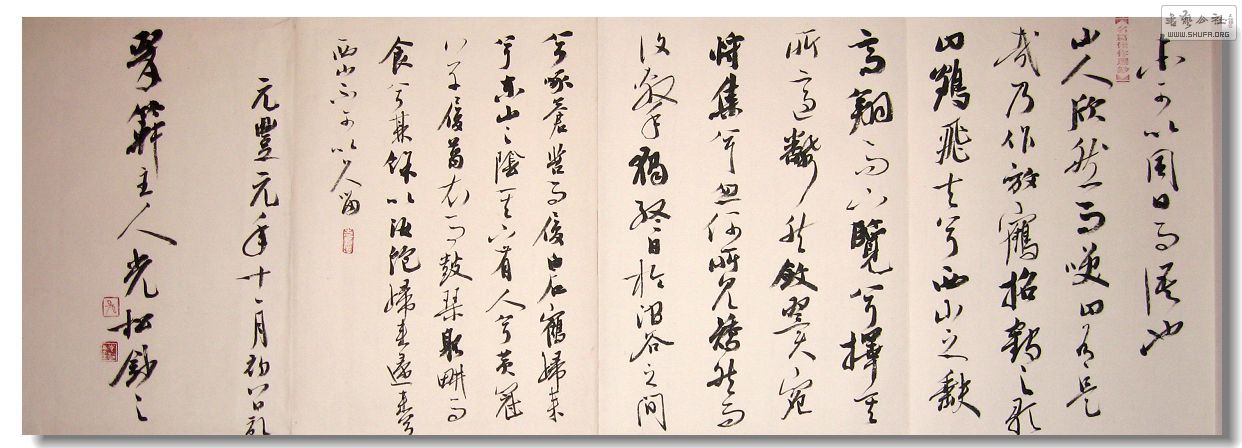 书艺公社
WWW.SHUFA.ORG
未可以同日而語也
山人欣然而笑曰有是
哉乃作放鶴招鶴之歌
曰鶴飛去兮西山之缺
高翔而下覽兮擇其
所適翻然斂翼宛
將集兮忽何所見矯然而
復擊獨終日於澗谷之間
兮啄蒼苔而履白石鶴歸來
兮東山之陰其下有人兮黃冠
草履葛衣而鼓琴躬耕而
食兮其餘以汝飽歸來歸來兮
西山不可以久留
元豐元年十一月初八日記
主人光松錄之